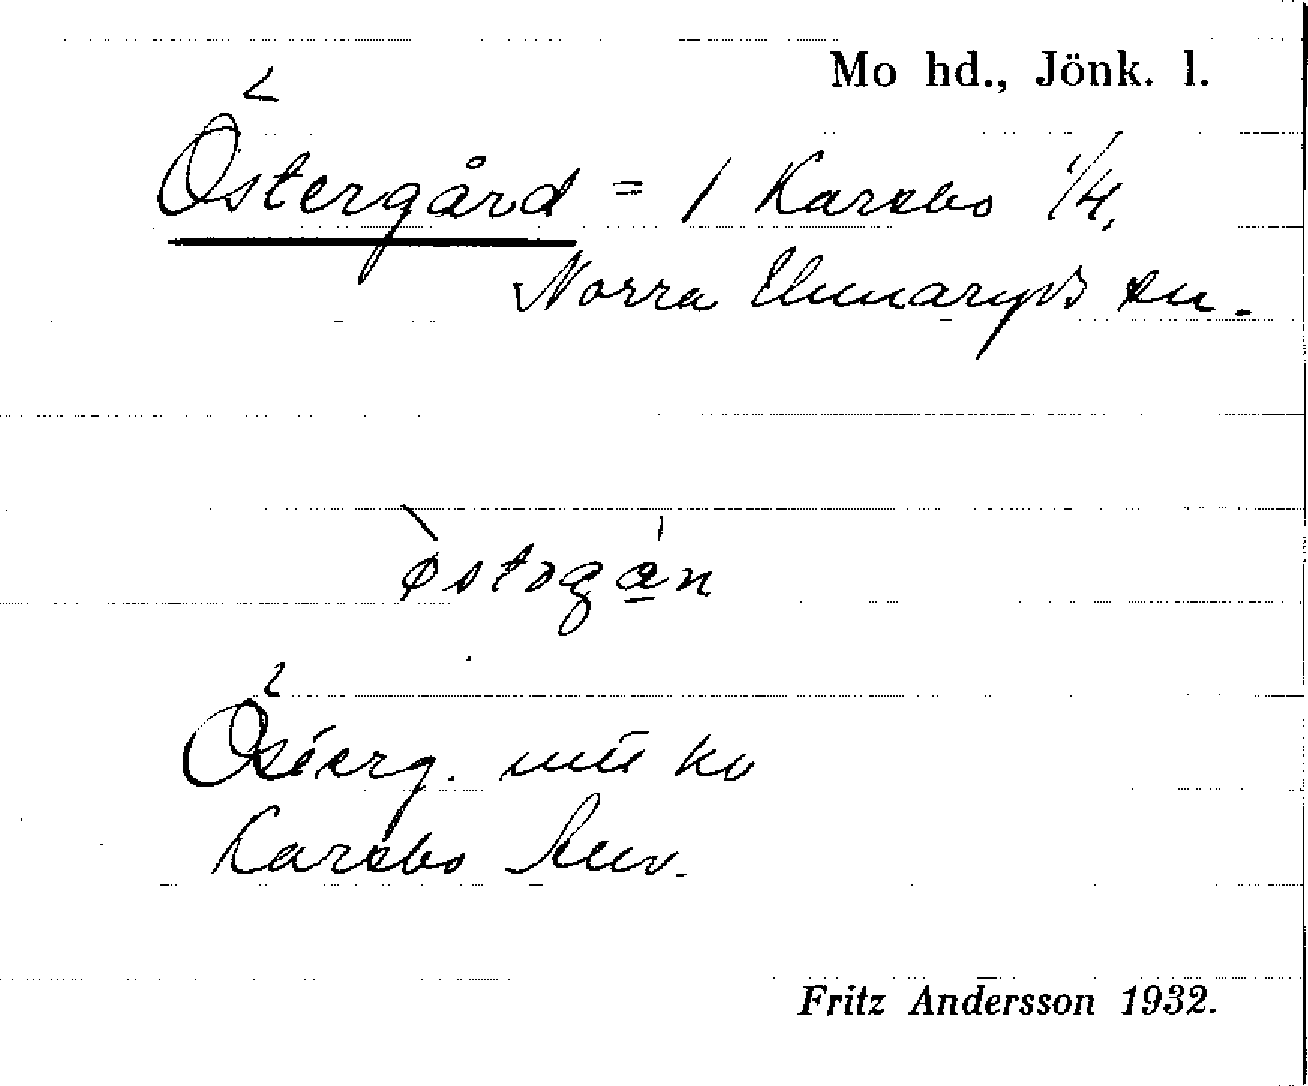 Mo hd., Jönk. l.
Östergård = 1 Karsbo 1/4,
Norra Unnaryds sn.
östəgan
Österg. mtl ko
Karsbo
Fritz Andersson 1932.